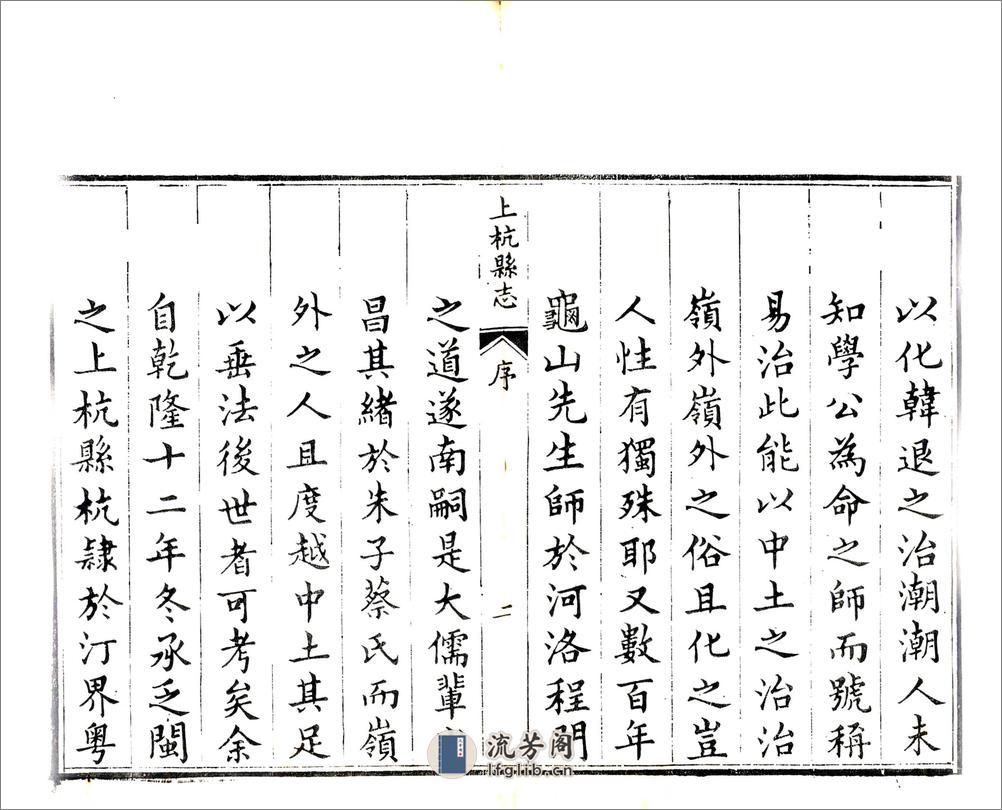 以化韓退之治潮潮人未
知學公為命之師而號稱
易治此能以中土之治治
嶺外嶺外之俗且化之豈
人性有獨殊耶又數百年
龜山先生師於河洛程門
上杭縣志
序
二
之道遂南嗣是大儒輩
昌其緒於朱子蔡氏而嶺
外之人且度越中土其足
以垂法後世者可考矣余
自乾隆十二年冬承乏閩
之上杭縣杭隸於汀界粵
流芳阁
lfglib.cn